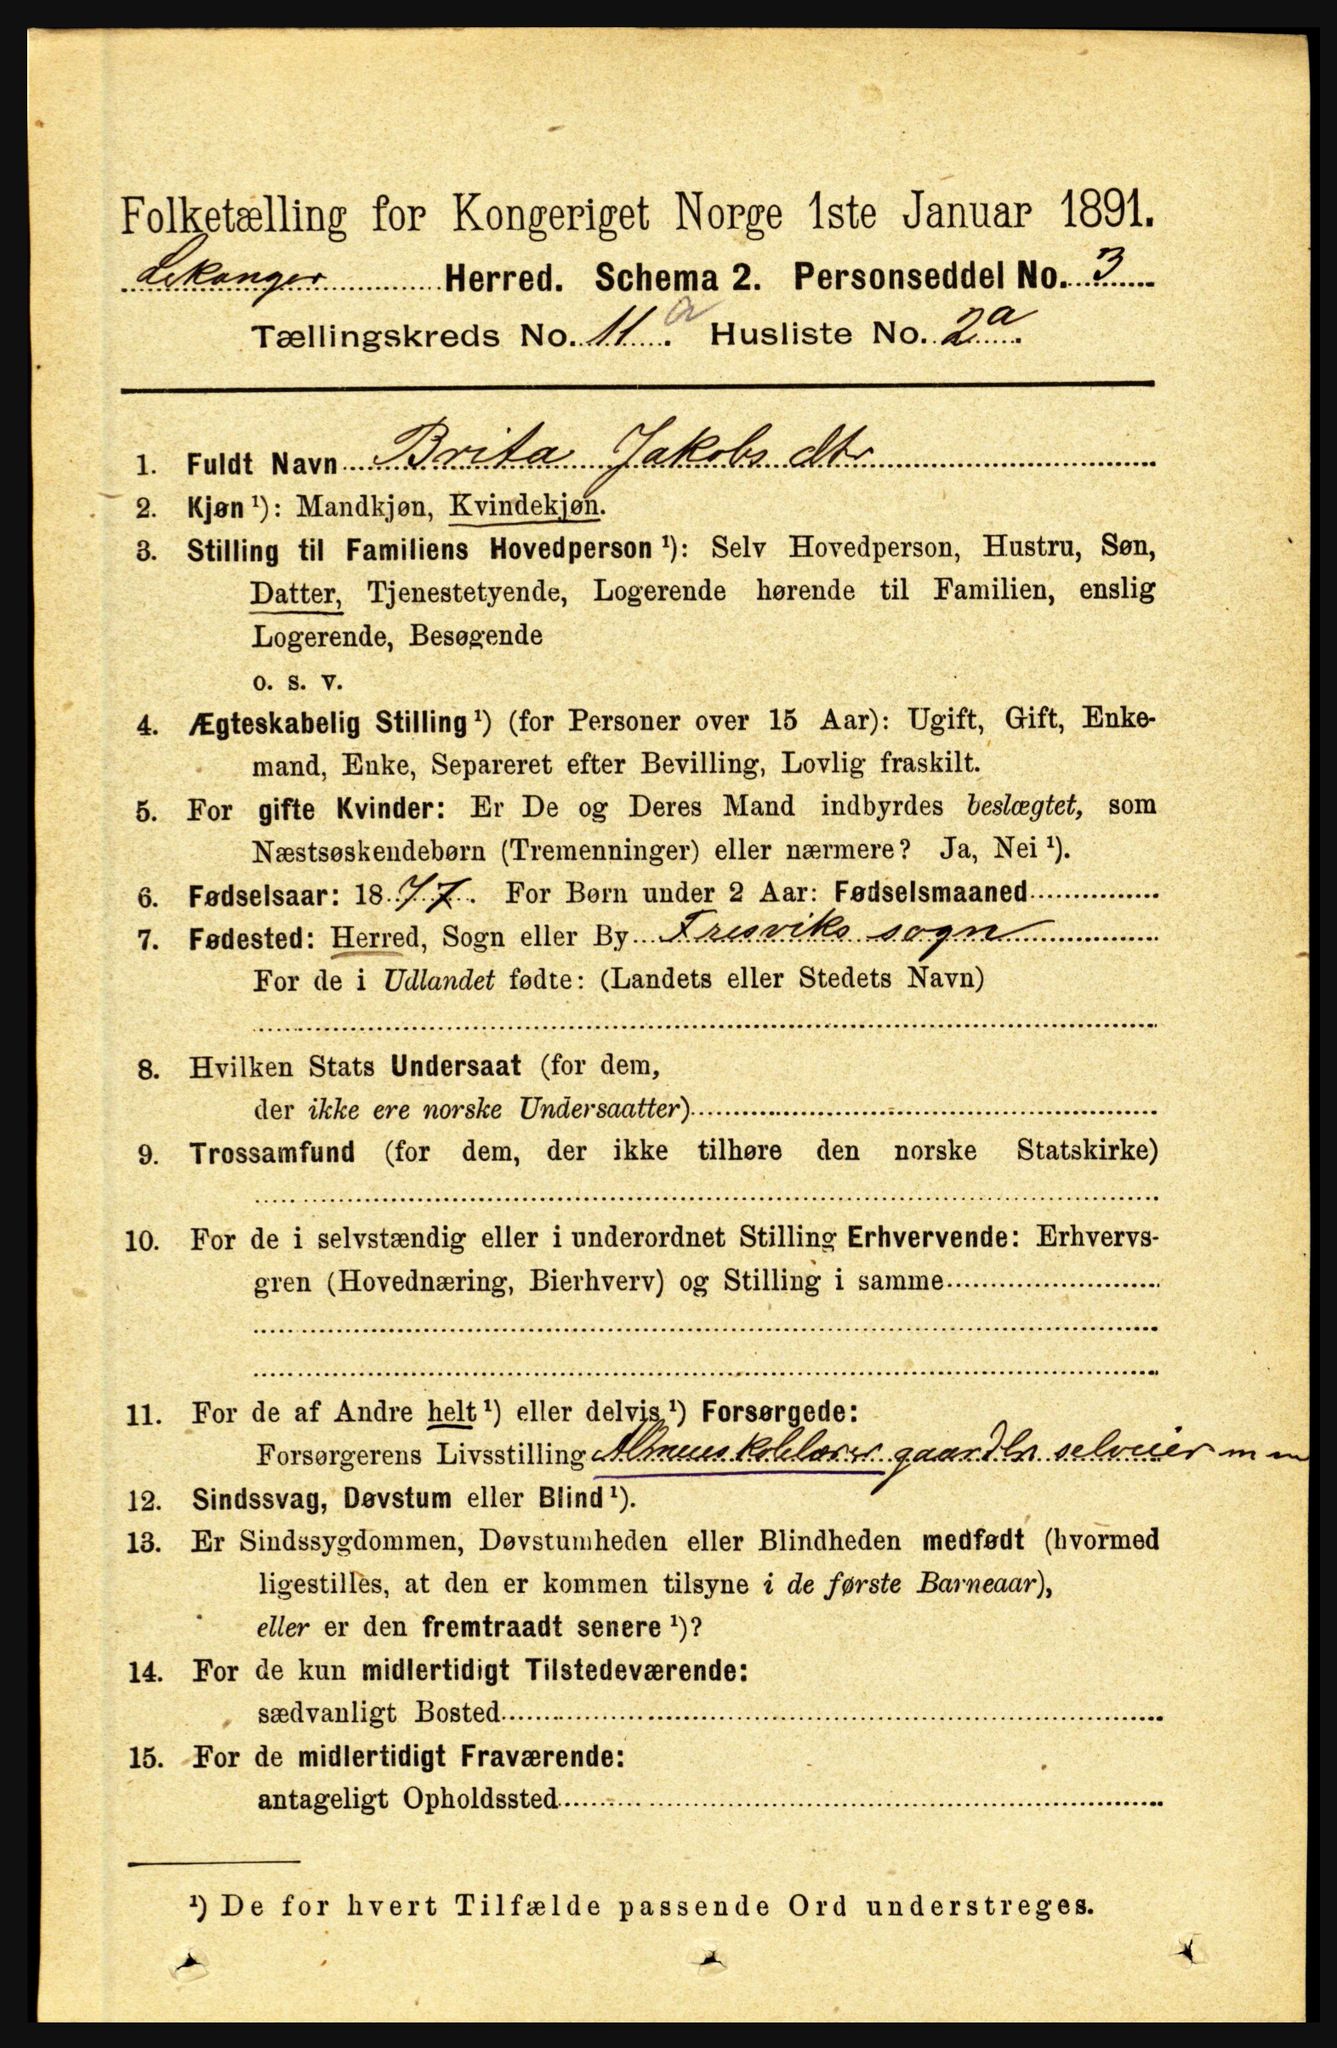 Folketælling for Kongeriget Norge 1ste Januar 1891.
Lekanger Herred. Schema 2. Personseddel No. 3
Tællingskreds No. 11 a Husliste No. 2a
1. Fuldt Navn Brita Jakobs dtr
2. Kjøn ¹): Mandkjøn, Kvindekjøn.
3. Stilling til Familiens Hovedperson ¹): Selv Hovedperson, Hustru, Søn,
Datter, Tjenestetyende, Logerende hørende til Familien, enslig
Logerende, Besøgende
o. s. v.
4. Ægteskabelig Stilling ¹) (for Personer over 15 Aar): Ugift, Gift, Enke-
mand, Enke, Separeret efter Bevilling, Lovlig fraskilt.
5. For gifte Kvinder: Er De og Deres Mand indbyrdes beslægtet, som
Næstsøskendebørn (Tremenninger) eller nærmere? Ja, Nei ¹).
6. Fødselsaar: 1877. For Børn under 2 Aar: Fødselsmaaned
7. Fødested: Herred, Sogn eller By Fresviks sogn
For de i Udlandet fødte: (Landets eller Stedets Navn)
8. Hvilken Stats Undersaat (for dem,
der ikke ere norske Undersaatter)
9. Trossamfund (for dem, der ikke tilhøre den norske Statskirke)
10. For de i selvstændig eller i underordnet Stilling Erhvervende: Erhvervs-
gren (Hovednæring, Bierhverv) og Stilling i samme
11. For de af Andre helt ¹) eller delvis ¹) Forsørgede:
Forsørgerens Livsstilling Almueskolelærer gaardbr selveier m m
12. Sindssvag, Døvstum eller Blind ¹).
13. Er Sindssygdommen, Døvstumheden eller Blindheden medfødt (hvormed
ligestilles, at den er kommen tilsyne i de første Barneaar),
eller er den fremtraadt senere ¹)?
14. For de kun midlertidigt Tilstedeværende:
sædvanligt Bosted
15. For de midlertidigt Fraværende:
antageligt Opholdssted
¹) De for hvert Tilfælde passende Ord understreges.